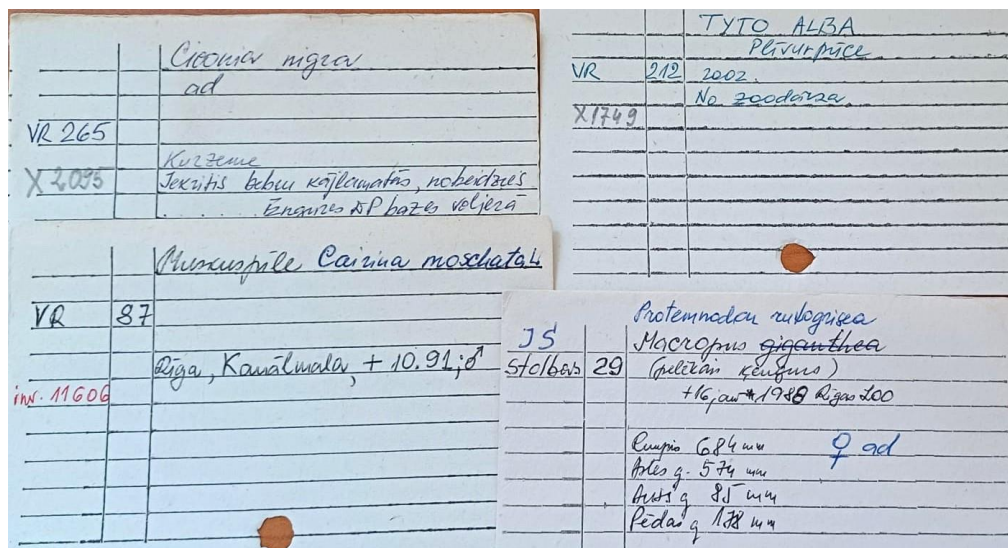 Ciconia nigra
ad
VR 265
Kurzeme
X 2095
Iekritis bebru kāju lamatās, nobeidzies
Engures DP bāzes voljerā
TYTO ALBA
Plīvurpūce
VR 212 2002.
No zoodārza
X1749
Muskuspīle Cairina moschata L
VR 87
Rīga, Kanālmala, + 10.91; ♂
inv. 11606
Protemnodon rufogrisea
JŠ Macropus giganthea
stolbovs 29 (pelēkais ķengurs)
+16 janv 1988 Rīgas ZOO
Rumpis 684 mm ♀ ad
Astes g. 574 mm
Auss g 85 mm
Pēdas g 178 mm